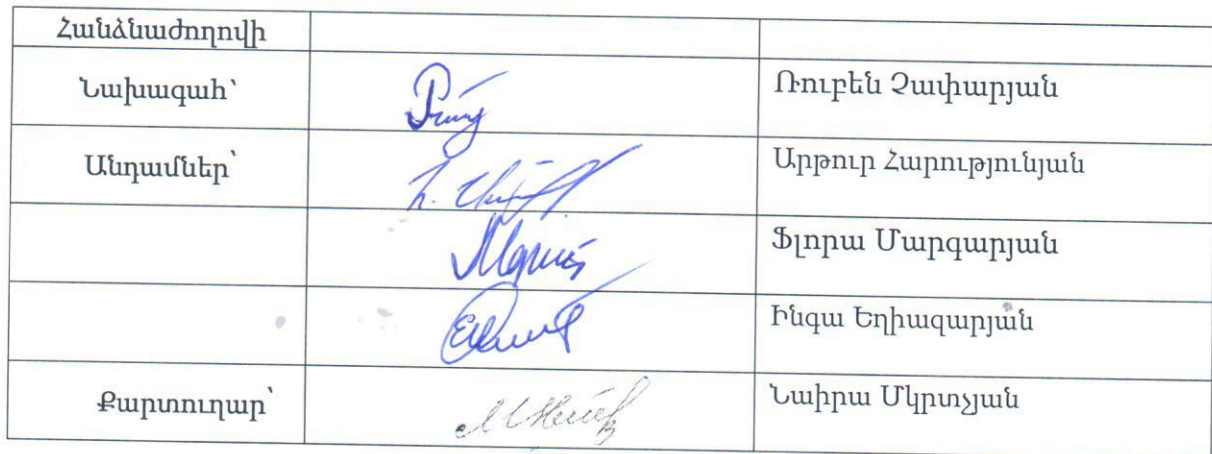 Հանձնաժողովի
Նախագահ՝ Ռուբեն Չափարյան
Անդամներ՝ Արթուր Հարությունյան
Ֆլորա Մարգարյան
Ինգա Եղիազարյան
Քարտուղար՝ Նաիրա Մկրտչյան